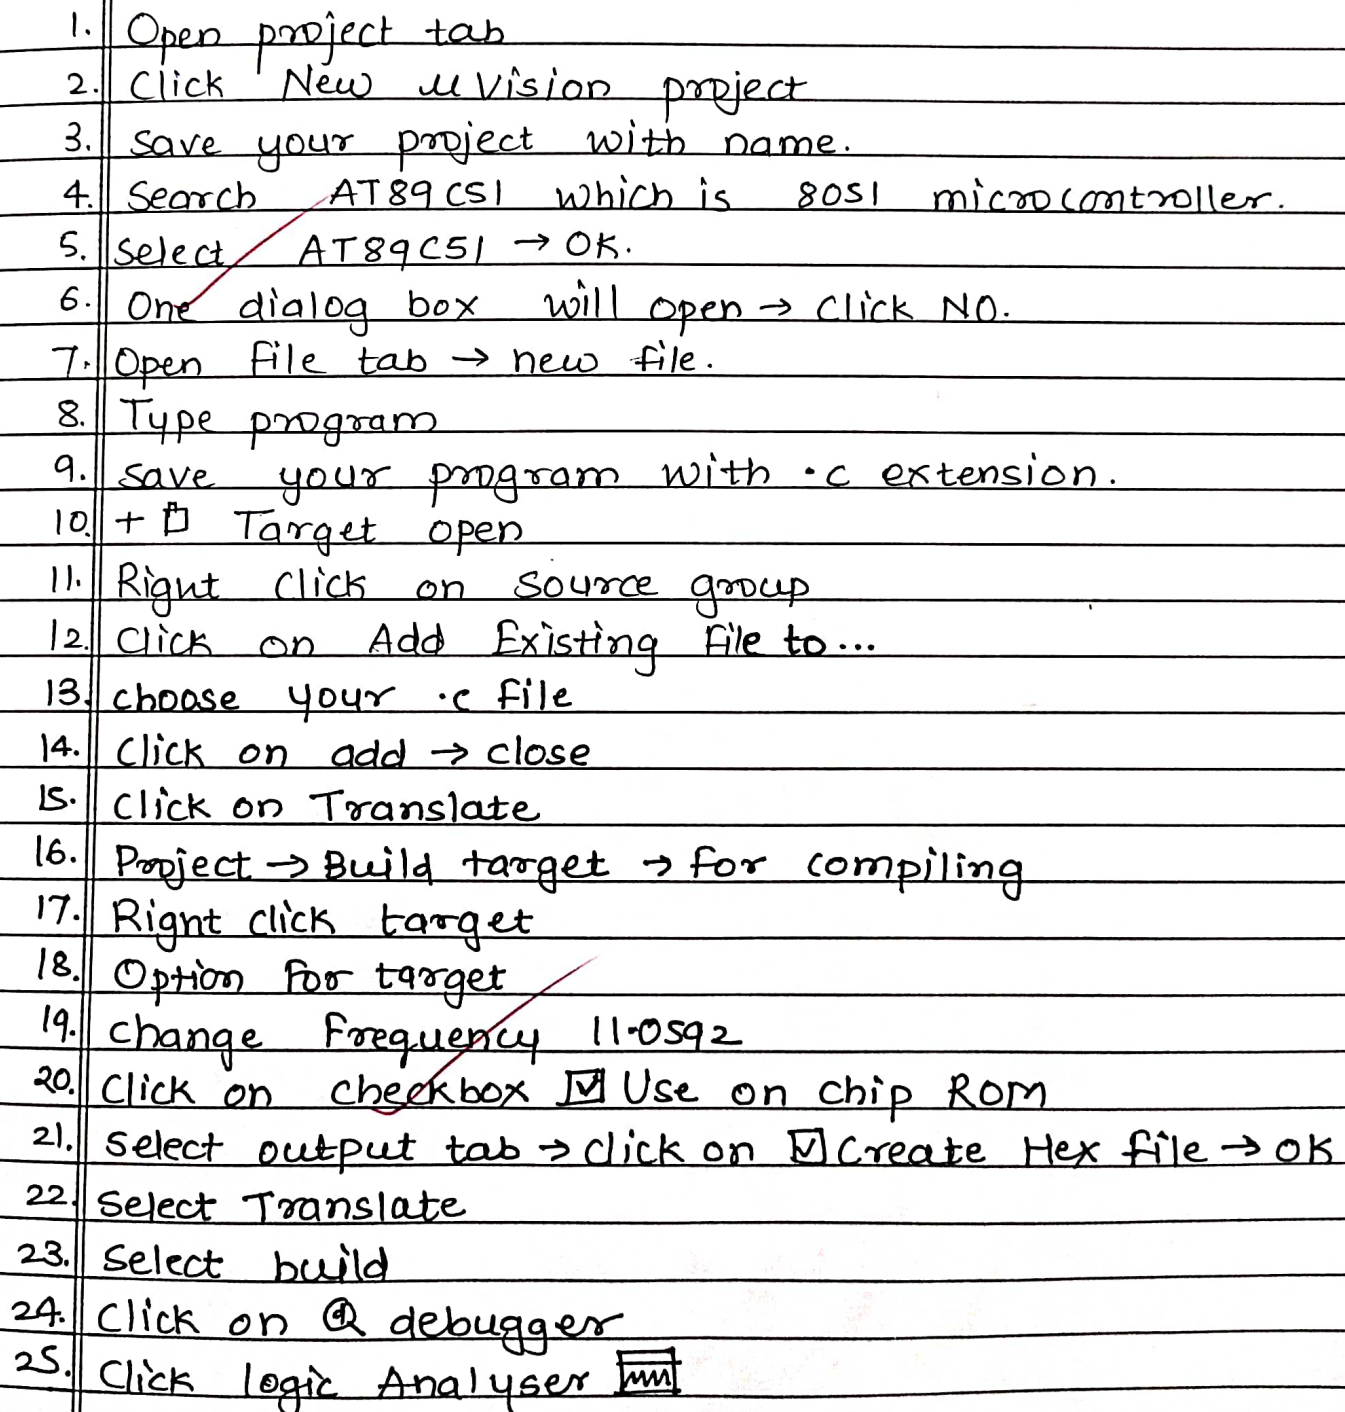 1. Open project tab
2. Click New μVision project
3. Save your project with name.
4. Search AT89C51 which is 8051 microcontroller.
5. Select AT89C51 → OK.
6. One dialog box will open → Click NO.
7. Open File tab → new file.
8. Type program
9. Save your program with .c extension.
10. + Target open
11. Right Click on source group
12. Click on Add Existing File to...
13. choose your .c file
14. Click on add → close
15. Click on Translate
16. Project → Build target → for compiling
17. Right click target
18. Option for target
19. Change Frequency 11.0592
20. Click on checkbox ☑ Use on chip ROM
21. Select output tab → click on ☑ Create Hex file → OK
22. Select Translate
23. Select build
24. Click on @ debugger
25. Click logic Analyser